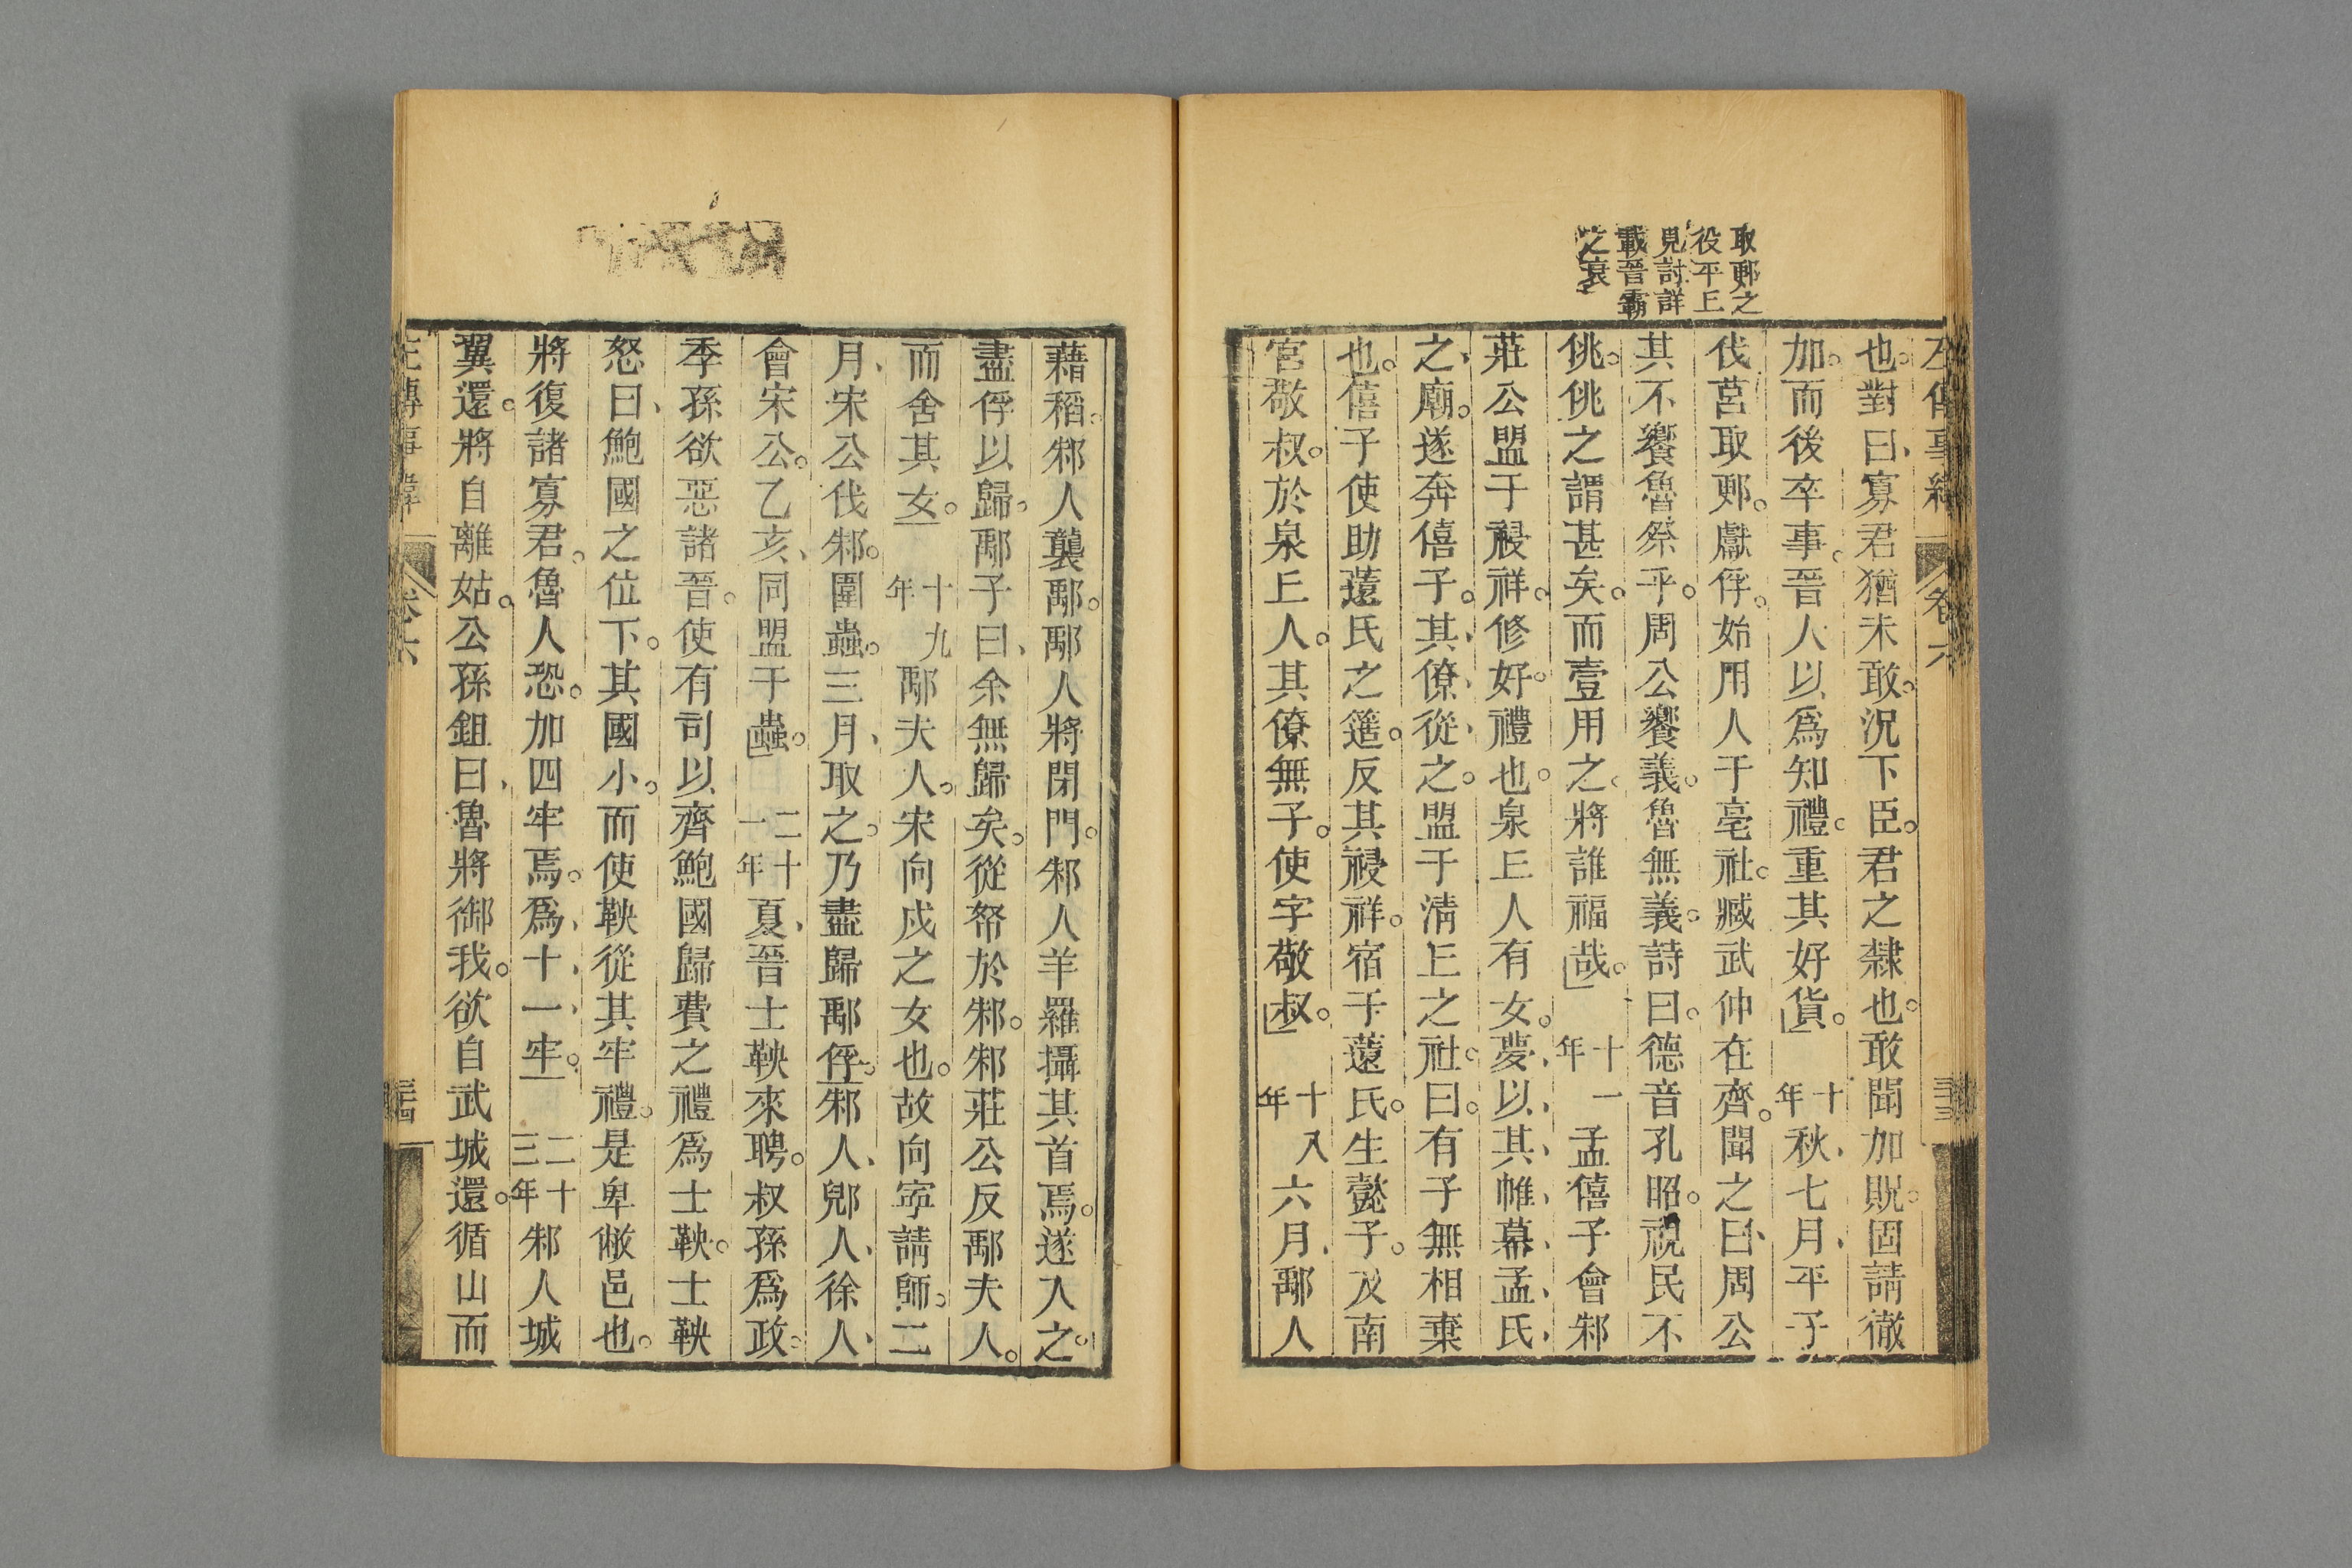 取郠之
役平丘
見討詳
載晉霸
之衰
左傳事緯
卷六
也。對曰、寡君猶未敢。況下臣。君之隸也。敢聞加貺。固請徹
加。而後卒事。晉人以爲知禮。重其好貨。十年秋、七月、平子
伐莒取郠。獻俘。始用人于亳社。臧武仲在齊。聞之曰、周公
其不饗魯祭乎。周公饗義。魯無義。詩曰。德音孔昭。視民不
佻。佻之謂甚矣。而壹用之。將誰福哉。十一年孟僖子會邾
莊公盟于祲祥。修好。禮也。泉丘人有女。夢、以、其、帷、幕、孟、氏、
之、廟。遂奔僖子。其、僚、從、之。盟于清丘之社。曰。有子無相棄
也。僖子使助薳氏之簉。反其祲祥。宿于薳氏。生懿子。及南
宮敬叔。於泉丘人。其僚無子。使字敬叔。十八年六月、鄅人
藉稻。邾人襲鄅。鄅人將閉門。邾人羊羅攝其首焉。遂入之。
盡俘以歸。鄅子曰、余無歸矣。從帑於邾。邾莊公反鄅夫人。
而舍其女。十九年鄅夫人。宋向戌之女也。故向寧請師。二
月、宋公伐邾。圍蟲。三月、取之。乃盡歸鄅俘。邾人、郳人、徐人、
會宋公。乙亥、同盟于蟲。二十一年夏、晉士鞅來聘。叔孫爲政。
季孫欲惡諸晉。使有司以齊鮑國歸費之禮爲士鞅。士鞅
怒曰、鮑國之位下。其國小。而使鞅從其牢禮。是卑敝邑也。
將復諸寡君。魯人恐。加四牢焉。爲、十、一、牢。二十三年邾人城
翼還。將自離姑。公孫鉏曰、魯將御我。欲自武城還。循山而
左傳事緯
卷六